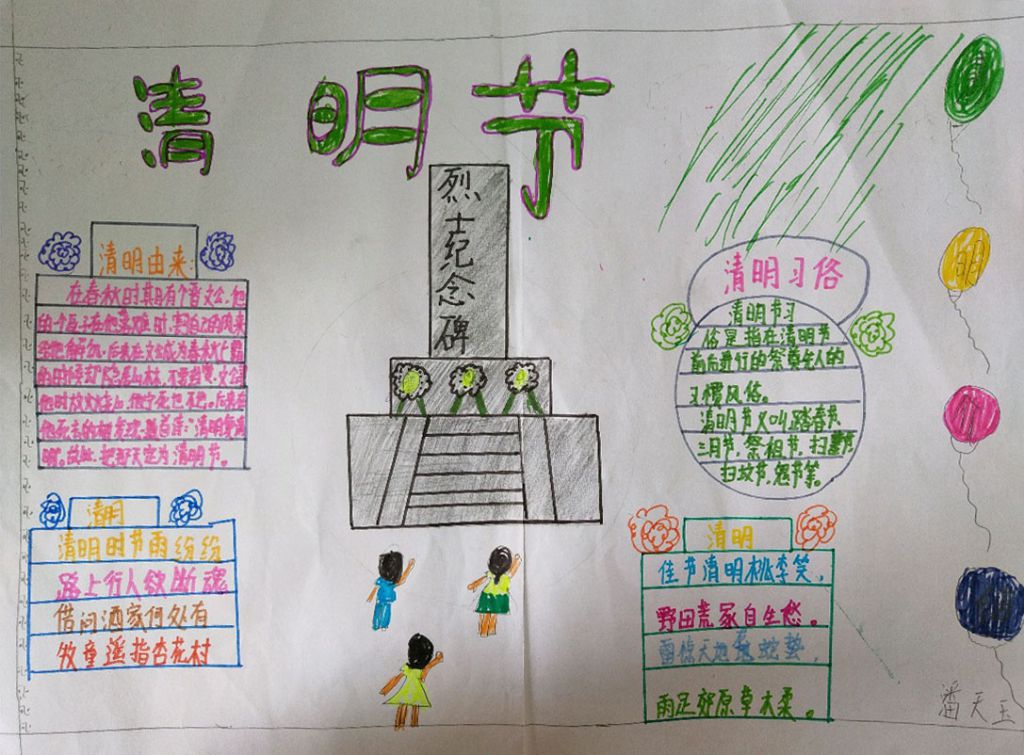 清明节
烈士纪念碑
清明由来:
在春秋时期有个晋文公,他
的一个臣子在他落难时,割自己的肉来
给他解饥,后来在文公成为春秋上霸
的时候却隐居山林,不愿
他时放火,他宁死也不
他死去的发现,首:“清明复清
明。故此,把那天定为清明节。
清明
清明时节雨纷纷
路上行人欲断魂
借问酒家何处有
牧童遥指杏花村
清明习俗
清明节习
俗是指在清明节
前后进行的祭奠先人的
习惯风俗。
清明节又叫踏春节、
三月节,祭祖节,扫墓节
扫坟节,鬼节等。
清明
佳节清明桃李笑,
野田荒冢自生愁。
雷惊天地龙蛇蛰,
雨足郊原草木柔。
潘天玉